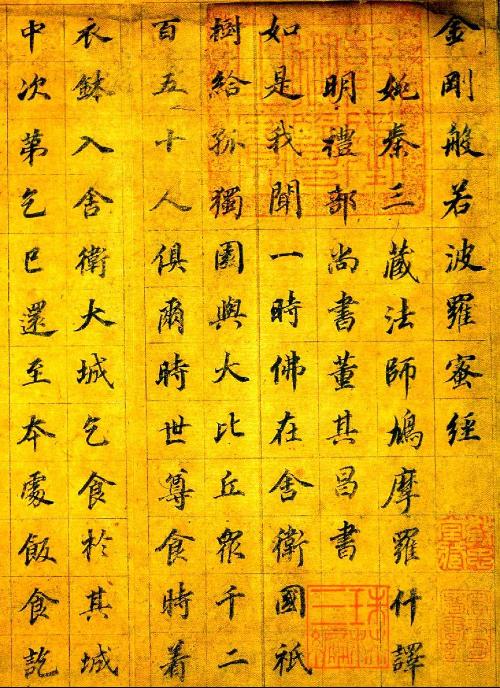 金剛般若波羅蜜經
姚秦三藏法師鳩摩羅什譯
明禮部尚書董其昌書
如是我聞一時佛在舍衛國祇
樹給孤獨園與大比丘眾千二
百五十人俱爾時世尊食時着
衣鉢入舍衛大城乞食於其城
中次第乞已還至本處飯食訖